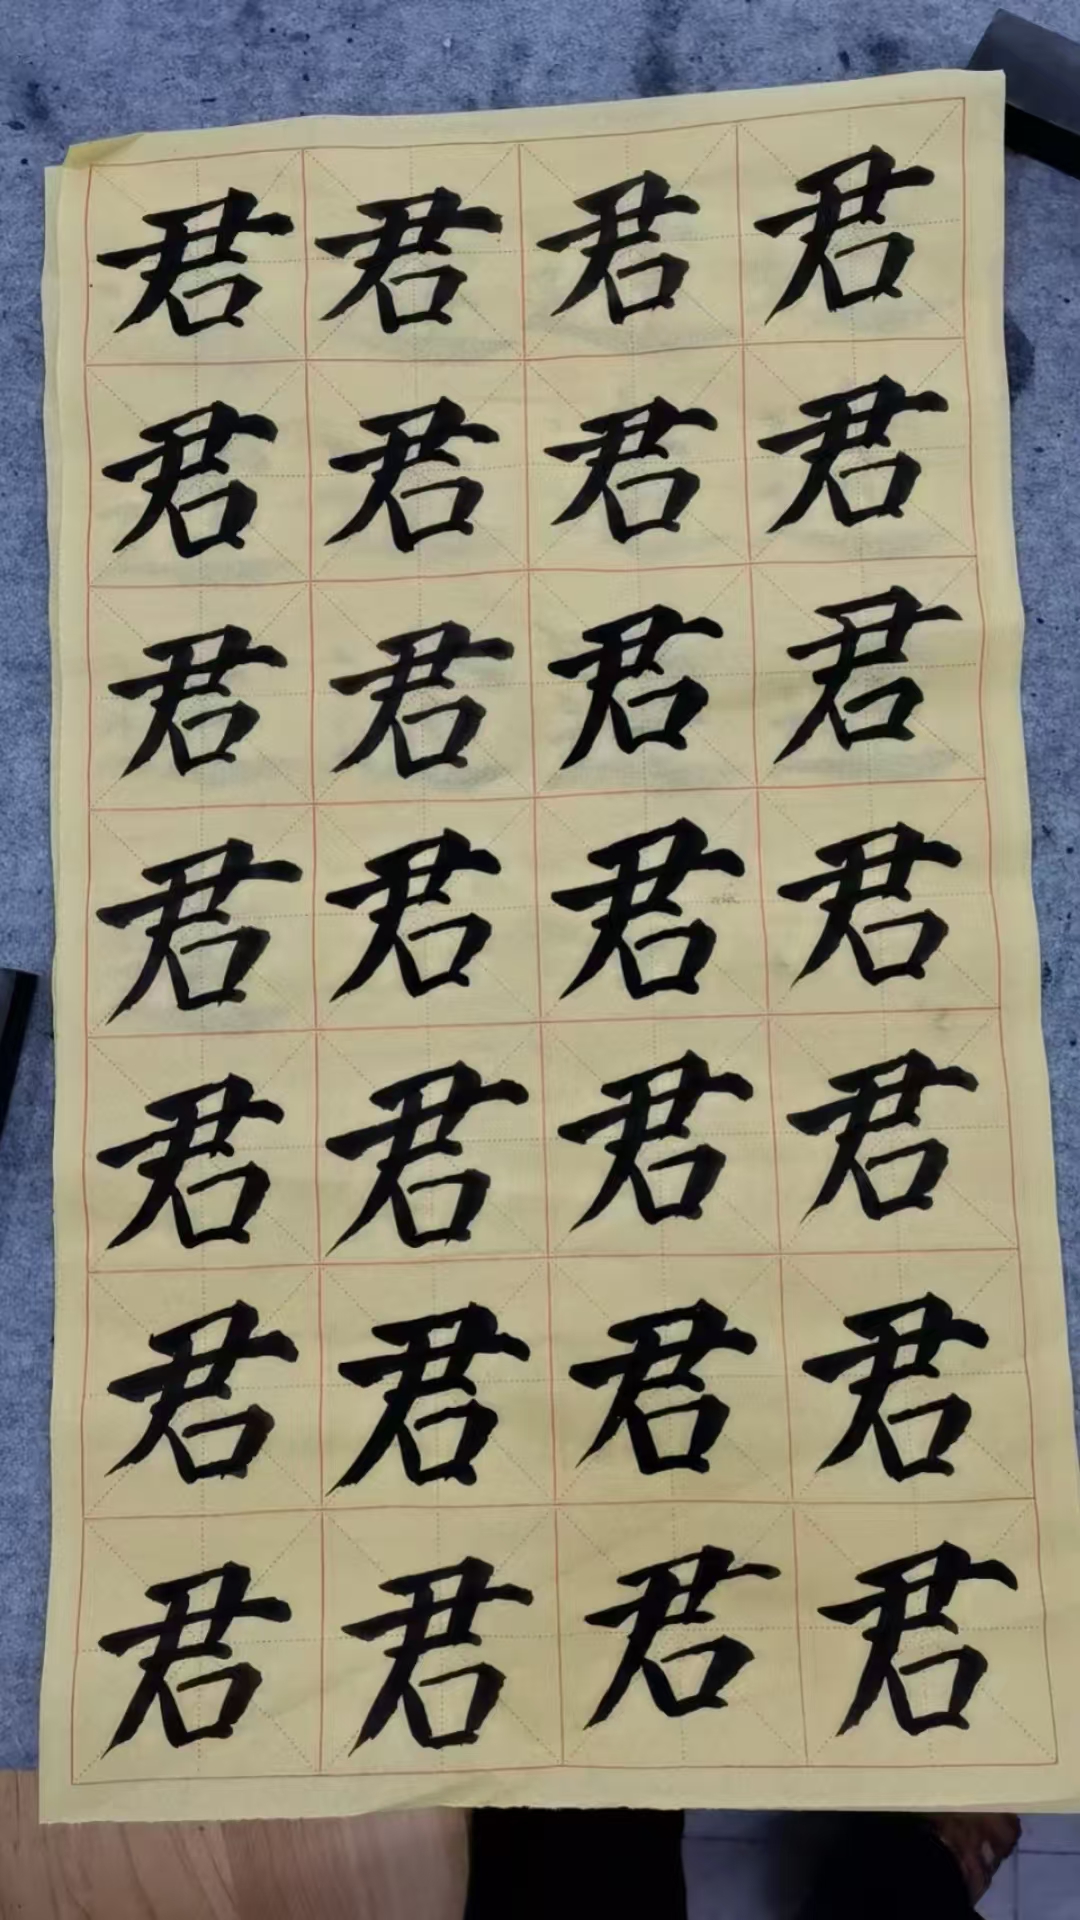 君君君君
君君君君
君君君君
君君君君
君君君君
君君君君
君君君君